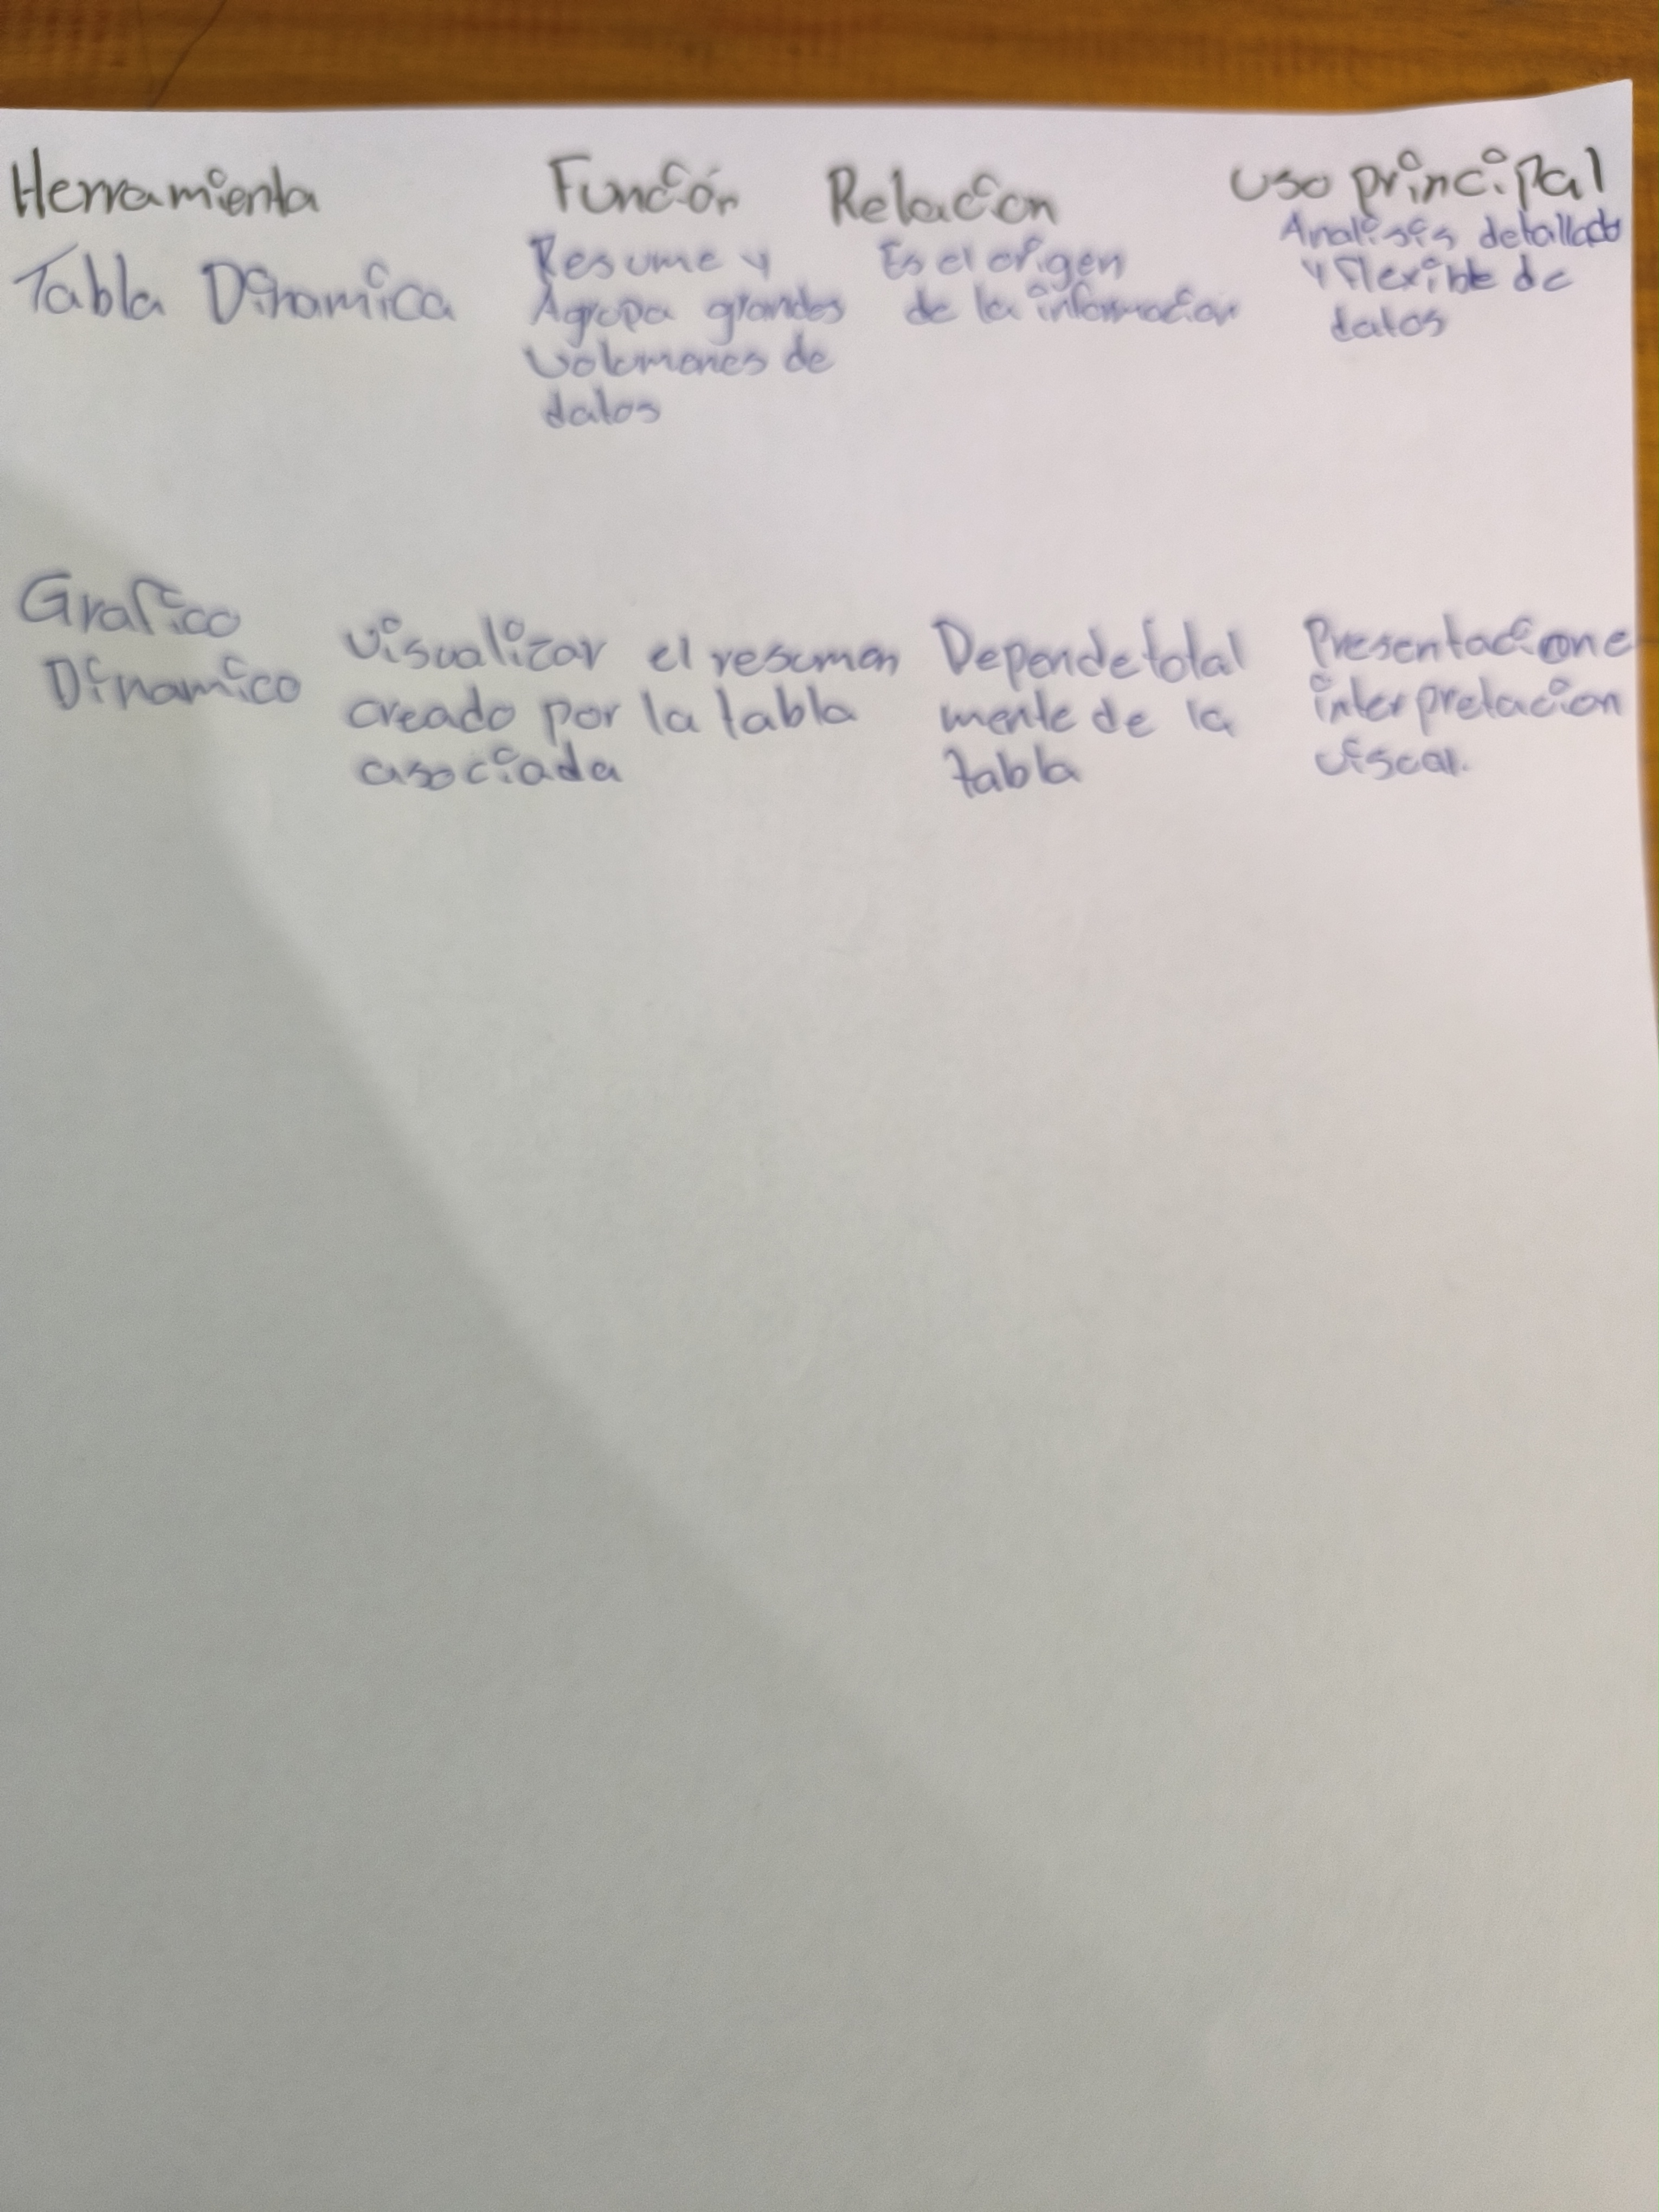 Herramienta Función Relacion uso principal
Tabla Dinamica Resume y Agrupa grandes volumenes de datos Es el origen de la informacion Analisis detallado y flexible de datos
Grafico Dinamico visualizar el resumen creado por la tabla asociada Depende total mente de la tabla Presentacion e interpretacion visual.